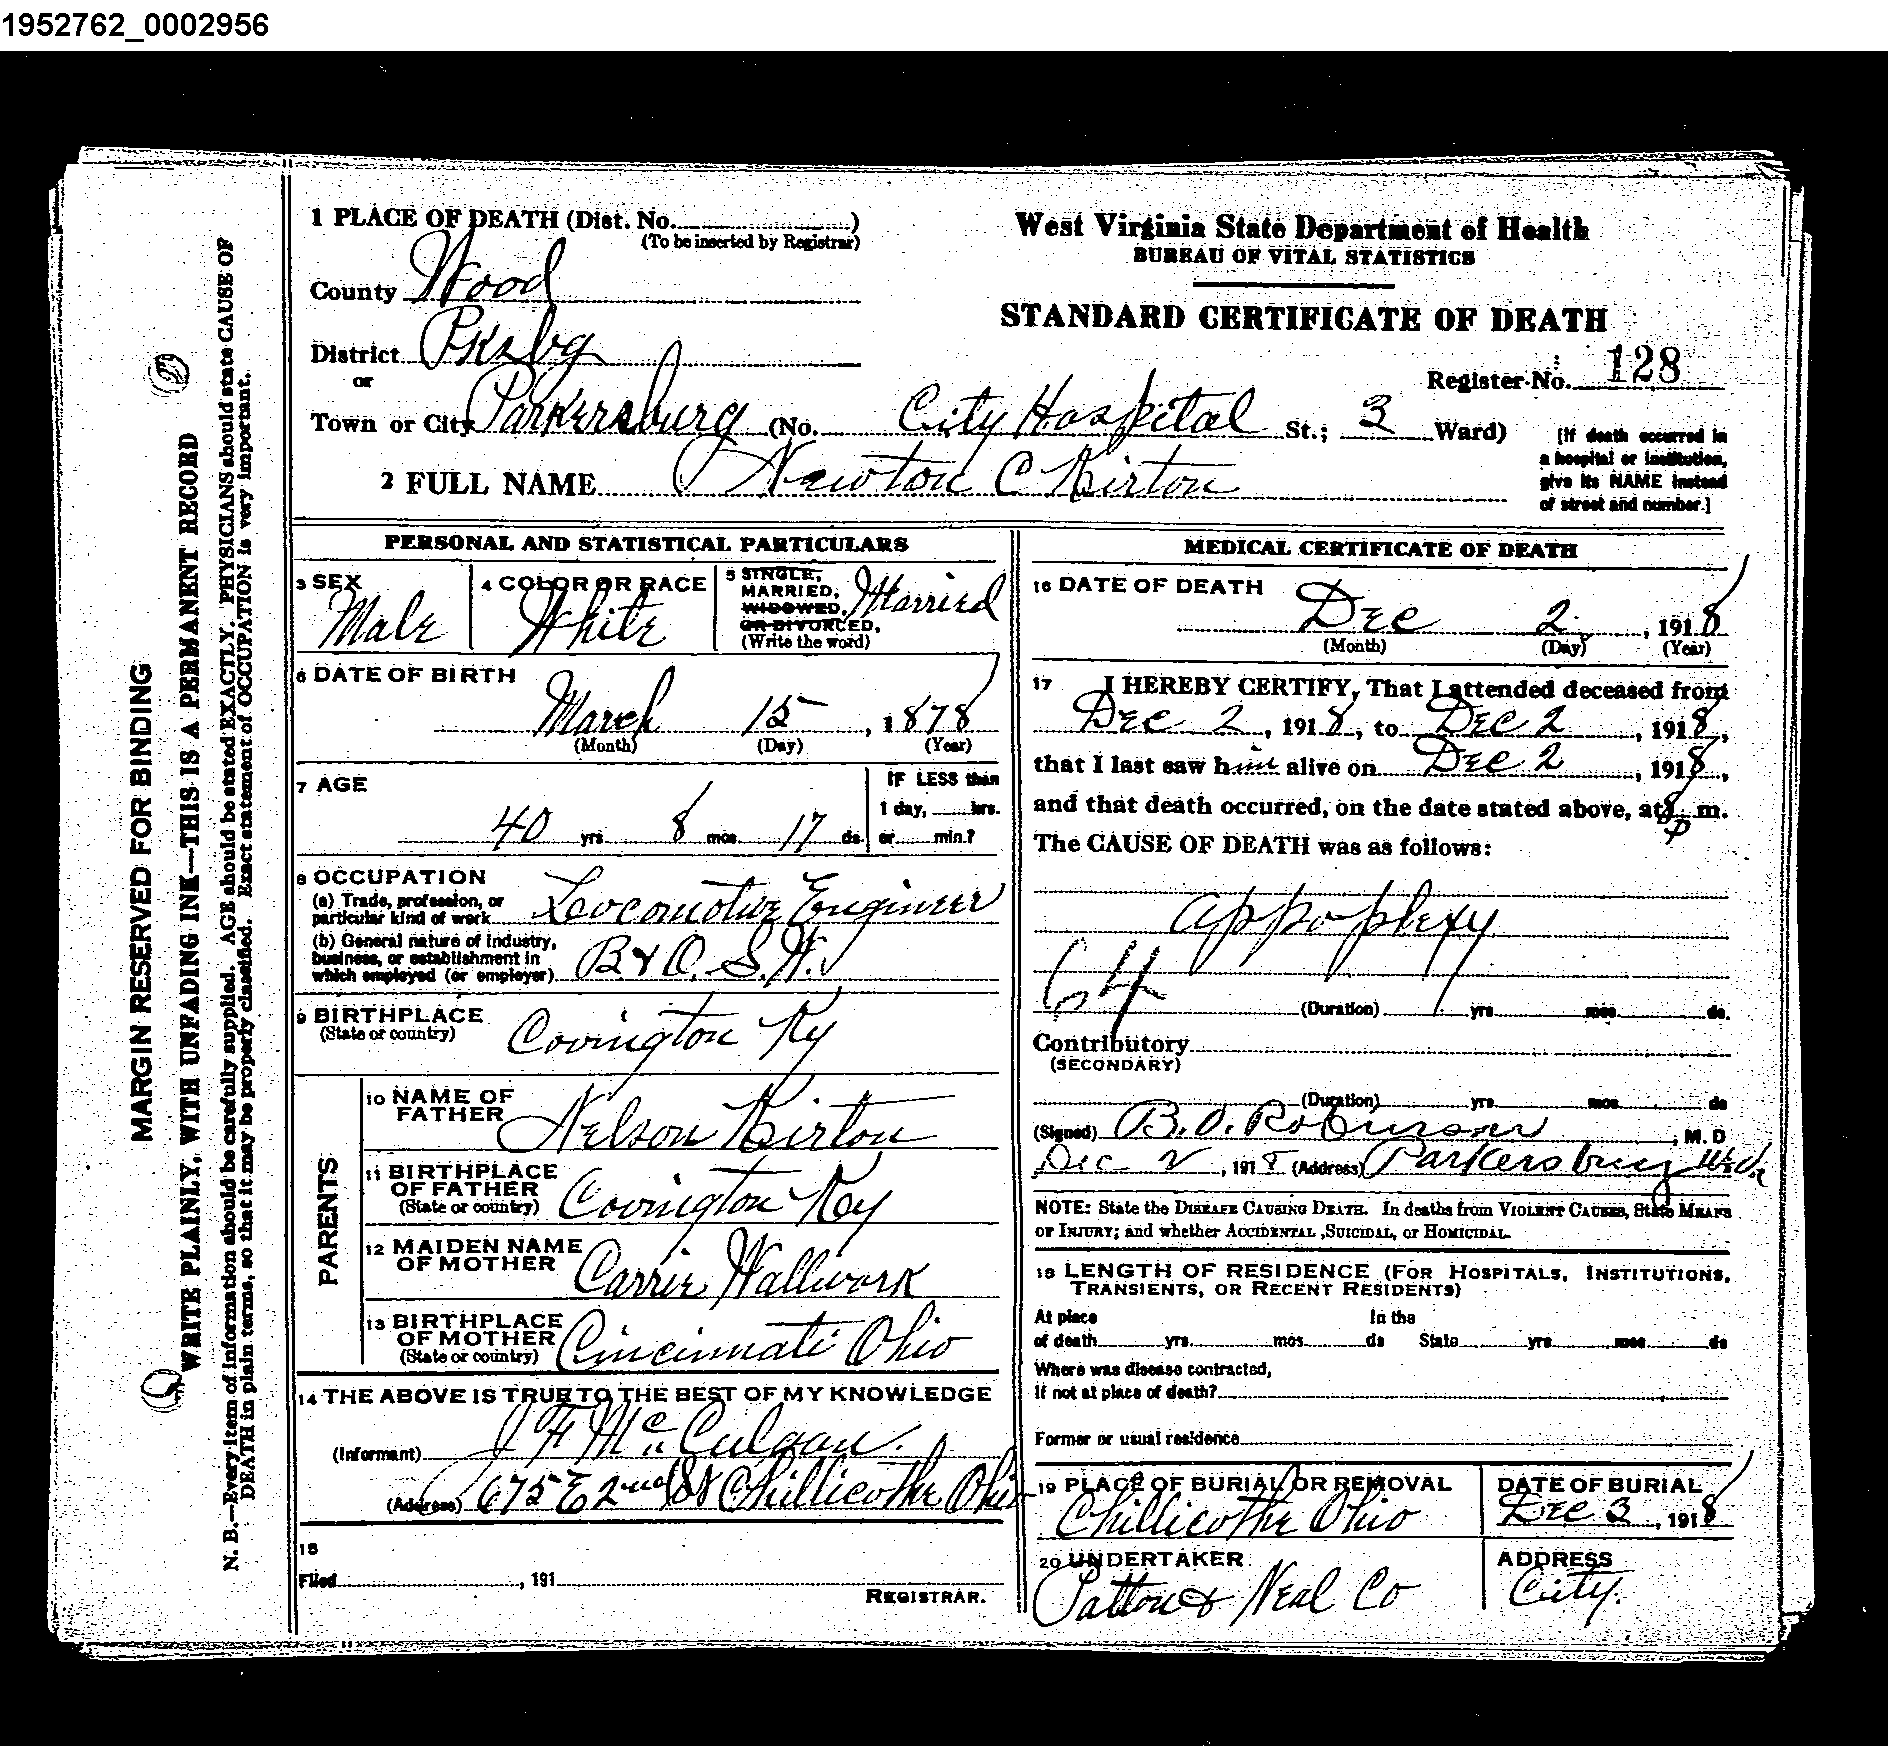 1952762_0002956
1 PLACE OF DEATH (Dist. No. )
(To be inserted by Registrar)
County Wood
District Pksbg
or
Town or City Parkersburg (No. City Hospital St.; 3 Ward)
2 FULL NAME Newton C Kirton
West Virginia State Department of Health
BUREAU OF VITAL STATISTICS
STANDARD CERTIFICATE OF DEATH
Register No. 128
[If death occurred in
a hospital or institution,
give its NAME instead
of street and number.]
MARGIN RESERVED FOR BINDING
WRITE PLAINLY, WITH UNFADING INK—THIS IS A PERMANENT RECORD
N. B.—Every item of information should be carefully supplied. AGE should be stated EXACTLY. PHYSICIANS should state CAUSE OF
DEATH in plain terms, so that it may be properly classified. Exact statement of OCCUPATION is very important.
PERSONAL AND STATISTICAL PARTICULARS
3 SEX
Male
4 COLOR OR RACE
White
5 SINGLE,
MARRIED,
WIDOWED,
OR DIVORCED,
(Write the word)
Married
6 DATE OF BIRTH
March 15, 1878
(Month) (Day) (Year)
7 AGE
40 yrs 8 mos 17 ds.
IF LESS than
1 day, hrs.
or min.?
8 OCCUPATION
(a) Trade, profession, or
particular kind of work Locomotive Engineer
(b) General nature of industry,
business, or establishment in
which employed (or employer) B & O. S.W.
9 BIRTHPLACE
(State or country) Covington Ky
PARENTS
10 NAME OF
FATHER Nelson Kirton
11 BIRTHPLACE
OF FATHER
(State or country) Covington Ky
12 MAIDEN NAME
OF MOTHER Carrie Wallwork
13 BIRTHPLACE
OF MOTHER
(State or country) Cincinnati Ohio
14 THE ABOVE IS TRUE TO THE BEST OF MY KNOWLEDGE
(Informant) J F McCulgan.
(Address) 675 E 2nd St Chillicothe Ohio
15
Filed , 191
REGISTRAR.
MEDICAL CERTIFICATE OF DEATH
16 DATE OF DEATH
Dec 2, 1918
(Month) (Day) (Year)
17 I HEREBY CERTIFY, That I attended deceased from
Dec 2, 1918, to Dec 2, 1918,
that I last saw him alive on Dec 2, 1918,
and that death occurred, on the date stated above, at 8 P m.
The CAUSE OF DEATH was as follows:
Appoplexy
64
(Duration) yrs mos ds.
Contributory
(SECONDARY)
(Duration) yrs mos ds
(Signed) B.O. Robinson, M. D
Dec 2, 1918 (Address) Parkersburg W.Va
NOTE: State the DISEASE CAUSING DEATH. In deaths from VIOLENT CAUSES, State MEANS
OF INJURY; and whether ACCIDENTAL, SUICIDAL, or HOMICIDAL.
18 LENGTH OF RESIDENCE (FOR HOSPITALS, INSTITUTIONS,
TRANSIENTS, OR RECENT RESIDENTS)
At place In the
of death yrs. mos ds State yrs mos ds
Where was disease contracted,
If not at place of death?
Former or usual residence
19 PLACE OF BURIAL OR REMOVAL
Chillicothe Ohio
DATE OF BURIAL
Dec 3, 1918
20 UNDERTAKER
Patton & Neal Co
ADDRESS
City.